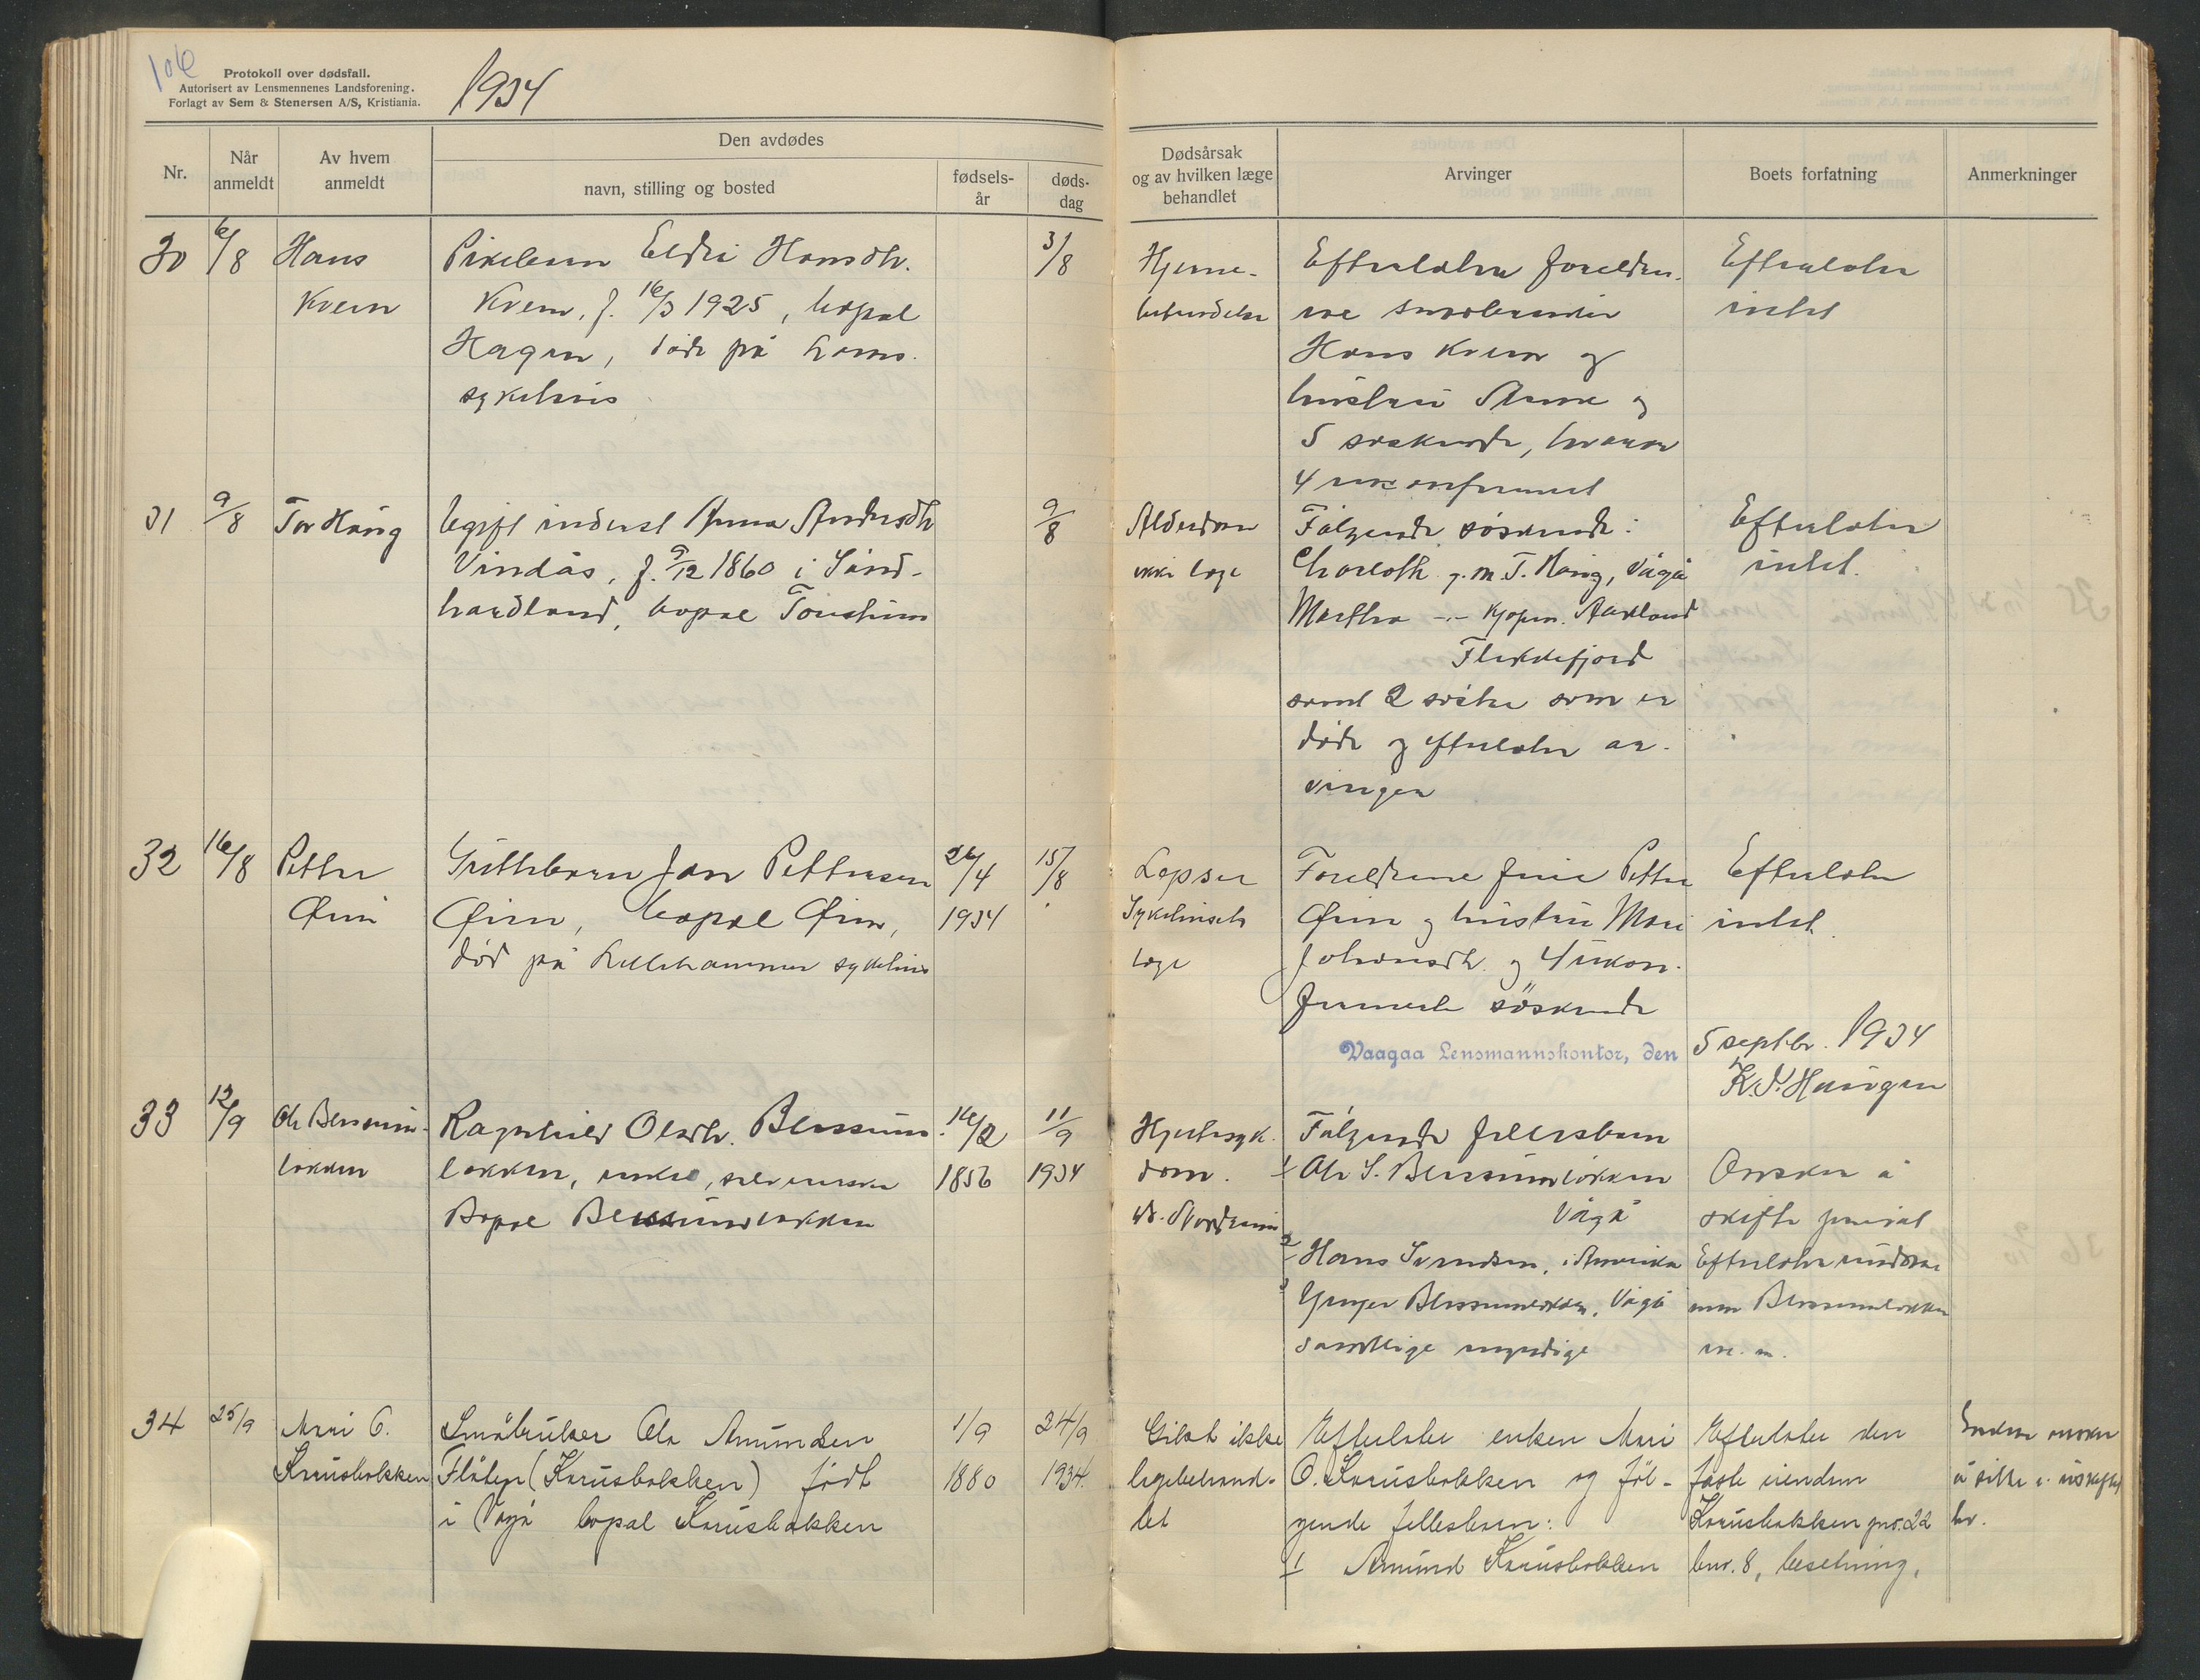 106
Protokoll over dødsfall.
Autorisert av Lensmennenes Landsforening.
Forlagt av Sem & Stenersen A/S, Kristiania.
1934
Nr.
Når anmeldt
Av hvem anmeldt
Den avdødes
navn, stilling og bosted
fødsels-år
døds-dag
Dødsårsak og av hvilken læge behandlet
Arvinger
Boets forfatning
Anmerkninger
30
6/8
Hans
Kvem
Pikebarn Eldri Hansdtr.
Kvem, f. 16/3 1925, bopæl
Hagen, døde på Loms
sykehus
3/8
Hjerne-
betendelse
Efterlater foreldre-
ne småbruker
Hans Kvem og
hustru Anne og
5 søskende, hvorav
4 ukonfirmert
Efterlater
intet
31
9/8
Tor Haug
Ugift inderst Anna Andersdtr
Vindås, f. 9/12 1860 i Sund-
hordland, bopæl
9/8
Alderdom
ikke læge
Følgende søskende:
g. m. T. Haug, Vågå
Martha -"- Kjøpm.
Flekkefjord
samt 2 søstre som er
døde og efterlater ar-
vinger
Efterlater
intet.
32
16/8
Petter
Øien
Guttebarn Jan Pettersen
Øien, bopæl Øien,
død på Lillehammer sykehus
26/4
1934
15/8
Sykehusets
læge
Foreldrene Petter
Øien og hustru Mari
Johansdtr. og 4 ukon-
firmerte søskende
Efterlater
intet.
Vaagaa Lensmannskontor, den 5 septbr. 1934
33
12/9
Ole Blessum-
løkken
Ragnhild Olsdtr. Blessum-
løkken, enke,
Bopæl Blessumløkken
16/2
1856
11/9
1934
Hjertesyk-
dom.
Følgende fellesbarn
1 Ole S. Blessumløkken
Vågå
2 Hans Svendsen, i Amerika
3 Blessumløkken, Vågå
samtlige myndige
Ønsker å
skifte privat
Efterlater eiendom-
men Blessumløkken
m. m.
34
25/9
Mari O.
Kruusbakken
Småbruker Ola Amundsen
Flåten (Kruusbakken) født
i Vågå bopæl Kruusbakken
1/9
1880
24/9
1934.
Gikt ikke
legebehand-
let
Efterlater enken Mari
O. Kruusbakken og føl-
gende fellesbarn:
1 Amund Kruusbakken
Efterlater den
faste eiendom
Kruusbakken gnr. 22
bnr. 8, besetning,
Enken ønsker
å sitte i uskiftet
bo.